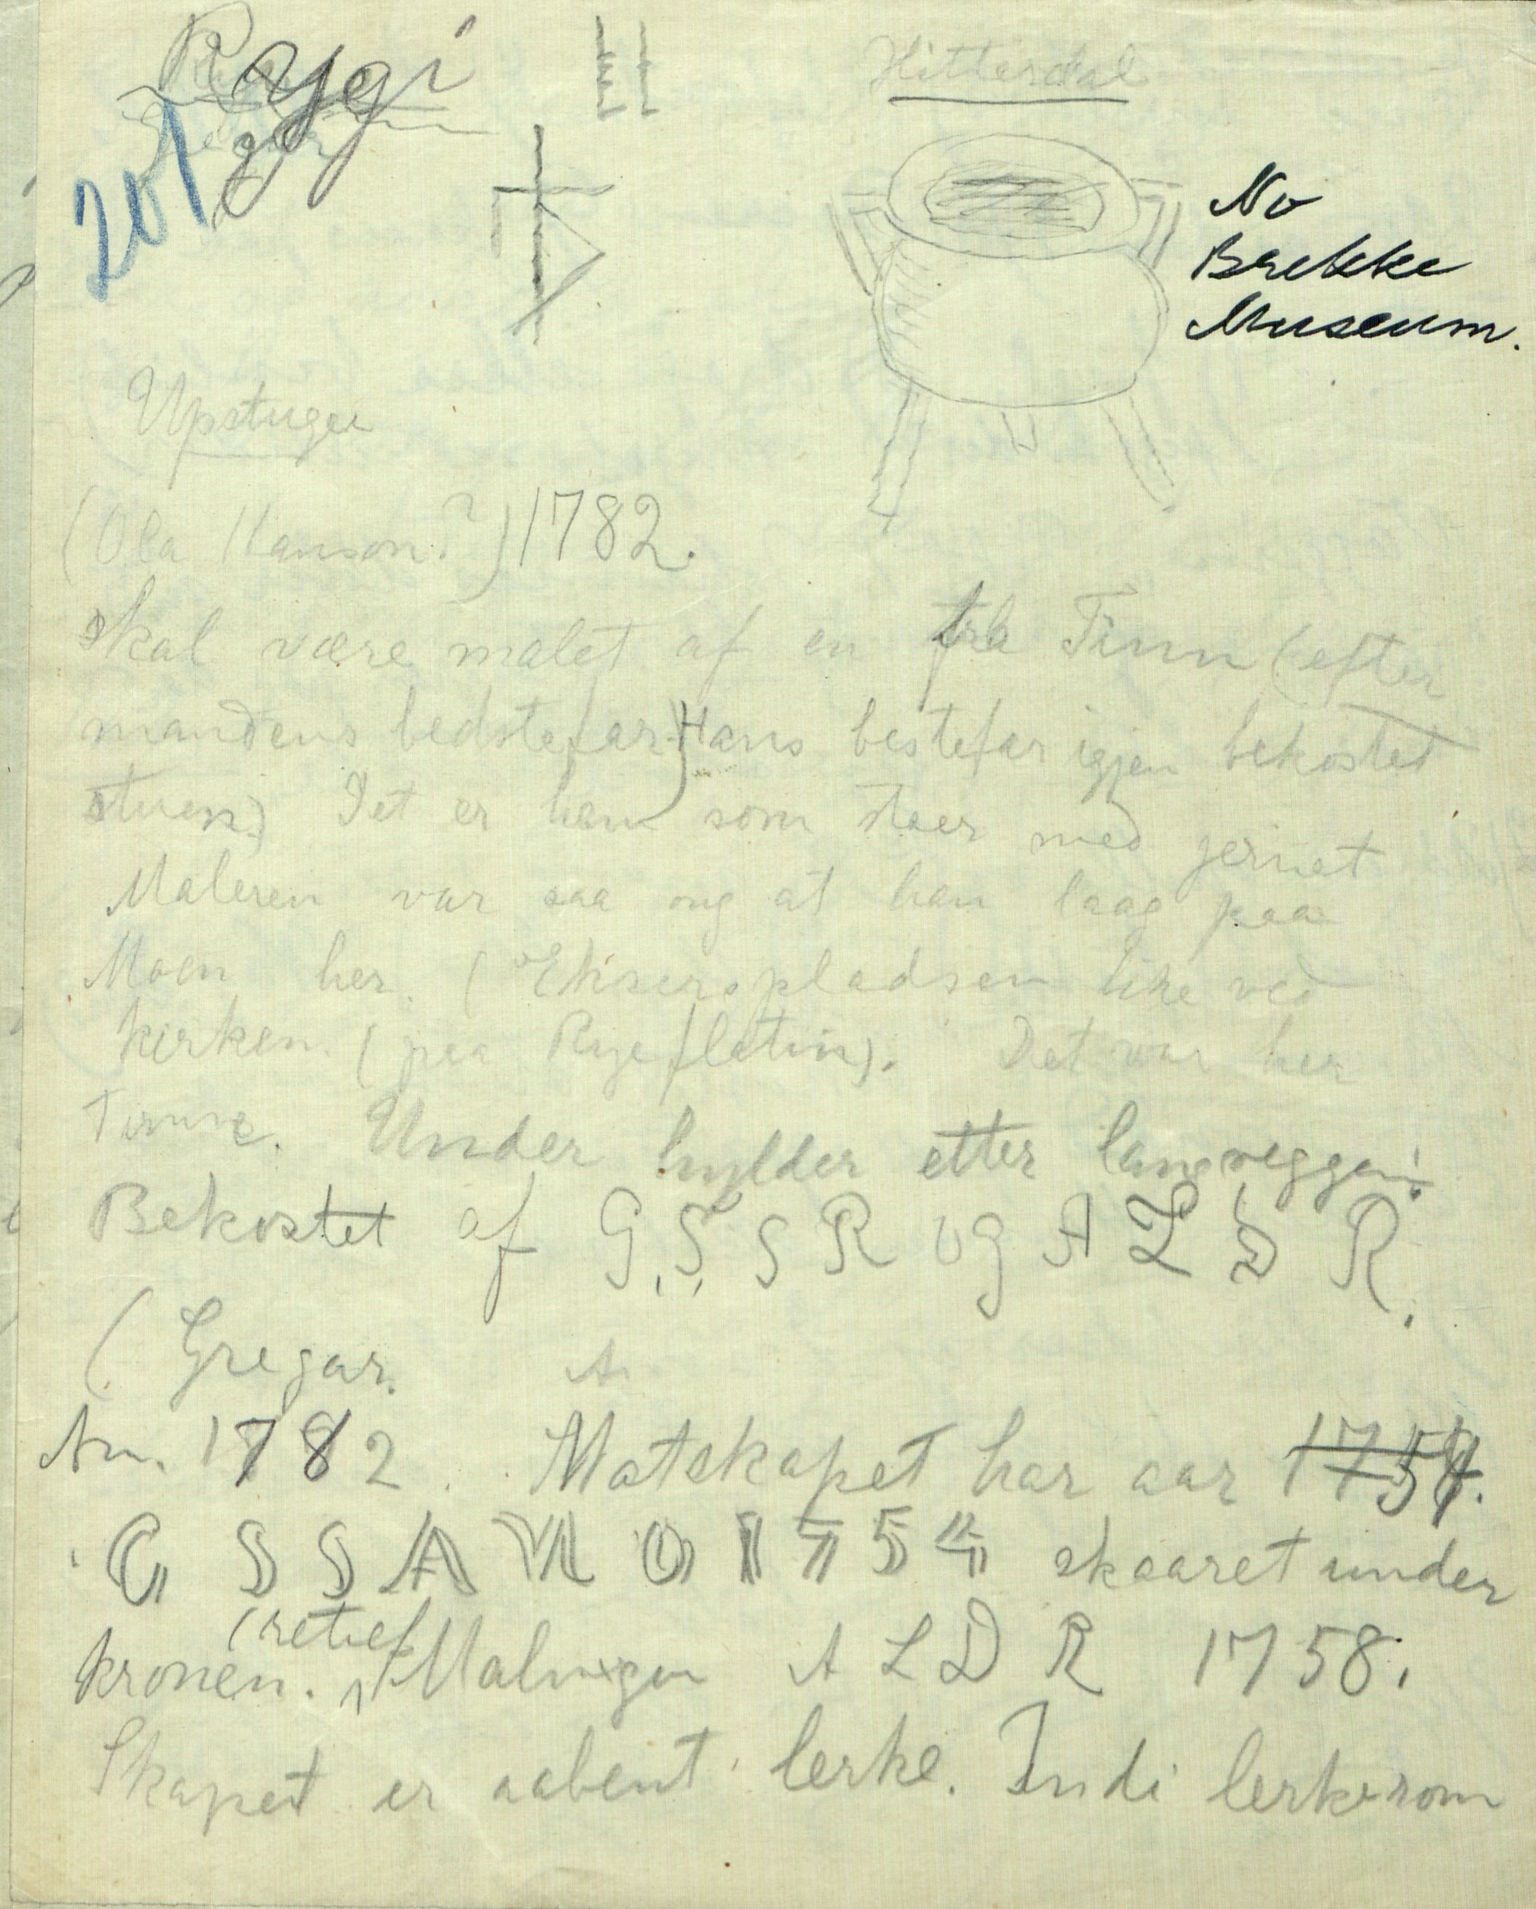 Rygi
Hitterdal
201
No
Brekke
Museum.
Upstugu
(Ola Hanson?) 1782.
skal være malet af en fra Tinn (efter
mandens bedstefar) Hans bestefar igjen bekostet
stuen) Det er han som staar med gerinet
Maleren var saa ung at han laag paa
Moen her. (Ekserspladsen like ved
kirken. (paa Ryeflatin). Det var her
Under hylder etter langveggen:
Bekostet af G. S. S R og A L D R.
(Gregar. A
An. 1782. Matskapet har aar 1754.
G S S A N O 1754 skaaret under
(retief
kronen. Malingen A L D R 1758.
Skapet er aabent lerke. Indi lerkerom